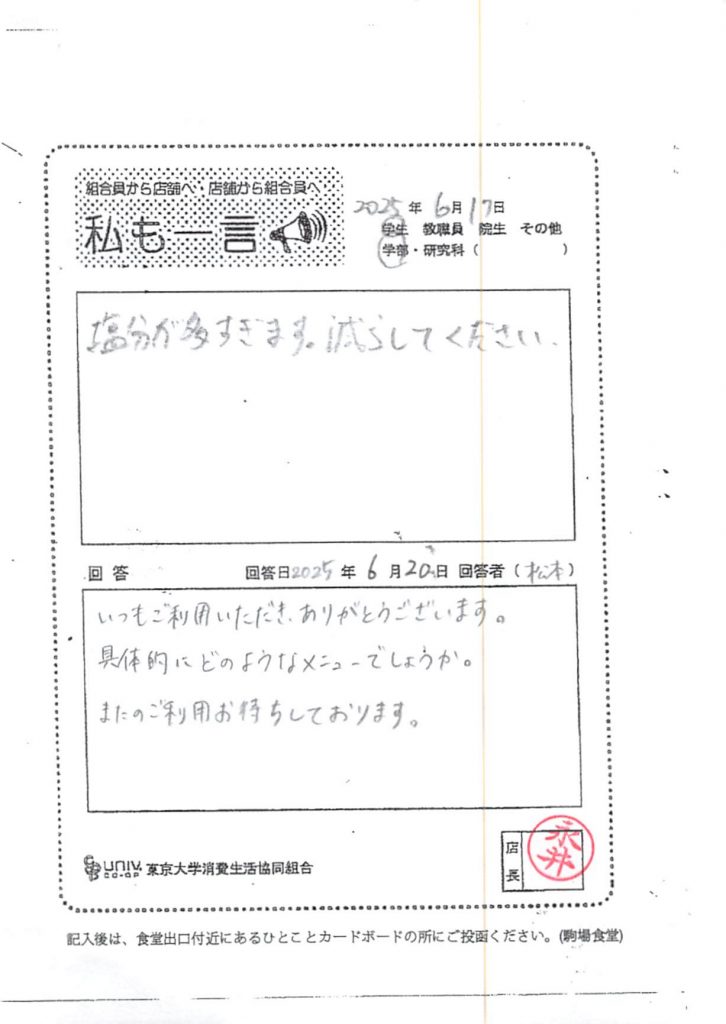 組合員から店舗へ・店舗から組合員へ
私も一言
2025年 6月17日
学生 教職員 院生 その他
学部・研究科( )
塩分が多すぎます。減らしてください.
回答 回答日2025年 6月20日 回答者(松本)
いつもご利用いただき、ありがとうございます。
具体的にどのようなメニューでしょうか。
またのご利用お待ちしております。
UNIV. CO-OP 東京大学消費生活協同組合
店長
永井
記入後は、食堂出口付近にあるひとことカードボードの所にご投函ください。(駒場食堂)